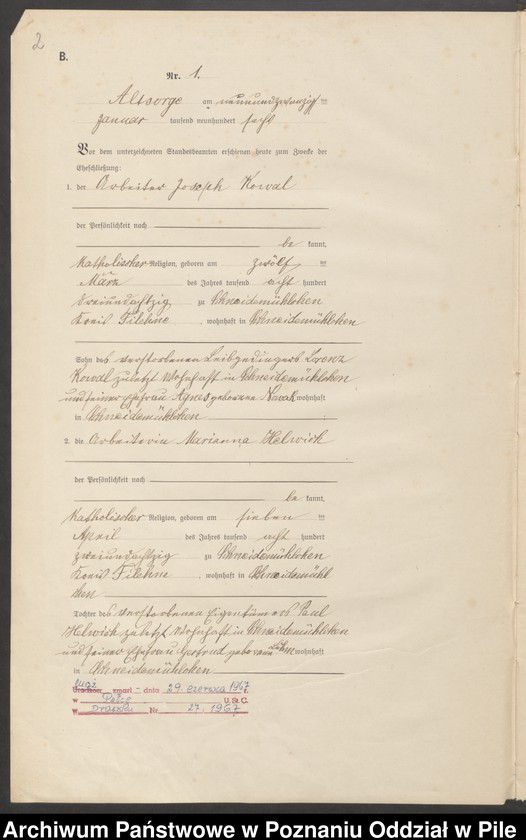 2
B.
Nr. 1.
Altsorge am neunundzwanzigsten
Januar tausend neunhundert sechs
Vor dem unterzeichneten Standesbeamten erschienen heute zum Zwecke der
Eheschließung:
1. der Arbeiter Joseph Kowal
der Persönlichkeit nach
be kannt,
katholischer Religion, geboren am zwölf ten
März des Jahres tausend acht hundert
dreiundachtzig zu Schneidemühlchen
Kreis Filehne, wohnhaft in Schneidemühlchen
Sohn des verstorbenen Leibgedingers Lorenz
Kowal zuletzt wohnhaft in Schneidemühlchen
und seiner Ehefrau Agnes geborene wohnhaft
in Schneidemühlchen
2. die Arbeiterin Marianna Helwich
der Persönlichkeit nach
be kannt,
katholischer Religion, geboren am sieben ten
April des Jahres tausend acht hundert
zweiundachtzig zu Schneidemühlchen
Kreis Filehne, wohnhaft in Schneidemühl
chen
Tochter des verstorbenen Eigentümers Paul
Helwich zuletzt wohnhaft in Schneidemühlchen
und seiner Ehefrau geborene wohnhaft
in Schneidemühlchen
mąż
zmarł dnia 29 czerwca 1967 r.
w U.S.C.
w Drawsku Nr 27.1967
Archiwum Państwowe w Poznaniu Oddział w Pile